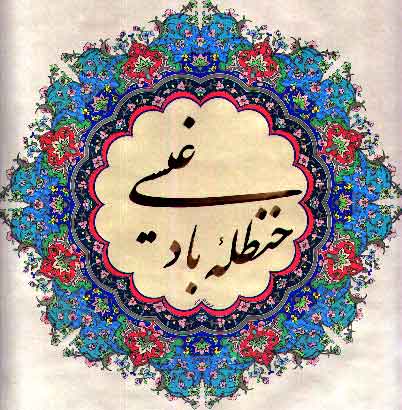 حنظلهٔ بادغیسی